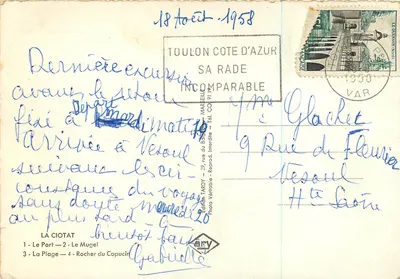 18 Août 1958
TOULON COTE D'AZUR
SA RADE
INCOMPARABLE
VAR
Dernière excursion
avant le retour
Départ
fixé à mardi matin 19
Arrivée à Vesoul
suivant les cir-
constances du voyage
sans doute mercredi 20
au plus tard à
bientôt
Gabrielle
Mme Glachet
9 Rue de Fleurier
Vesoul
Hte Saône
LA CIOTAT
1 - Le Port - 2 - Le Mugel
3 - La Plage - 4 - Rocher du Capucin